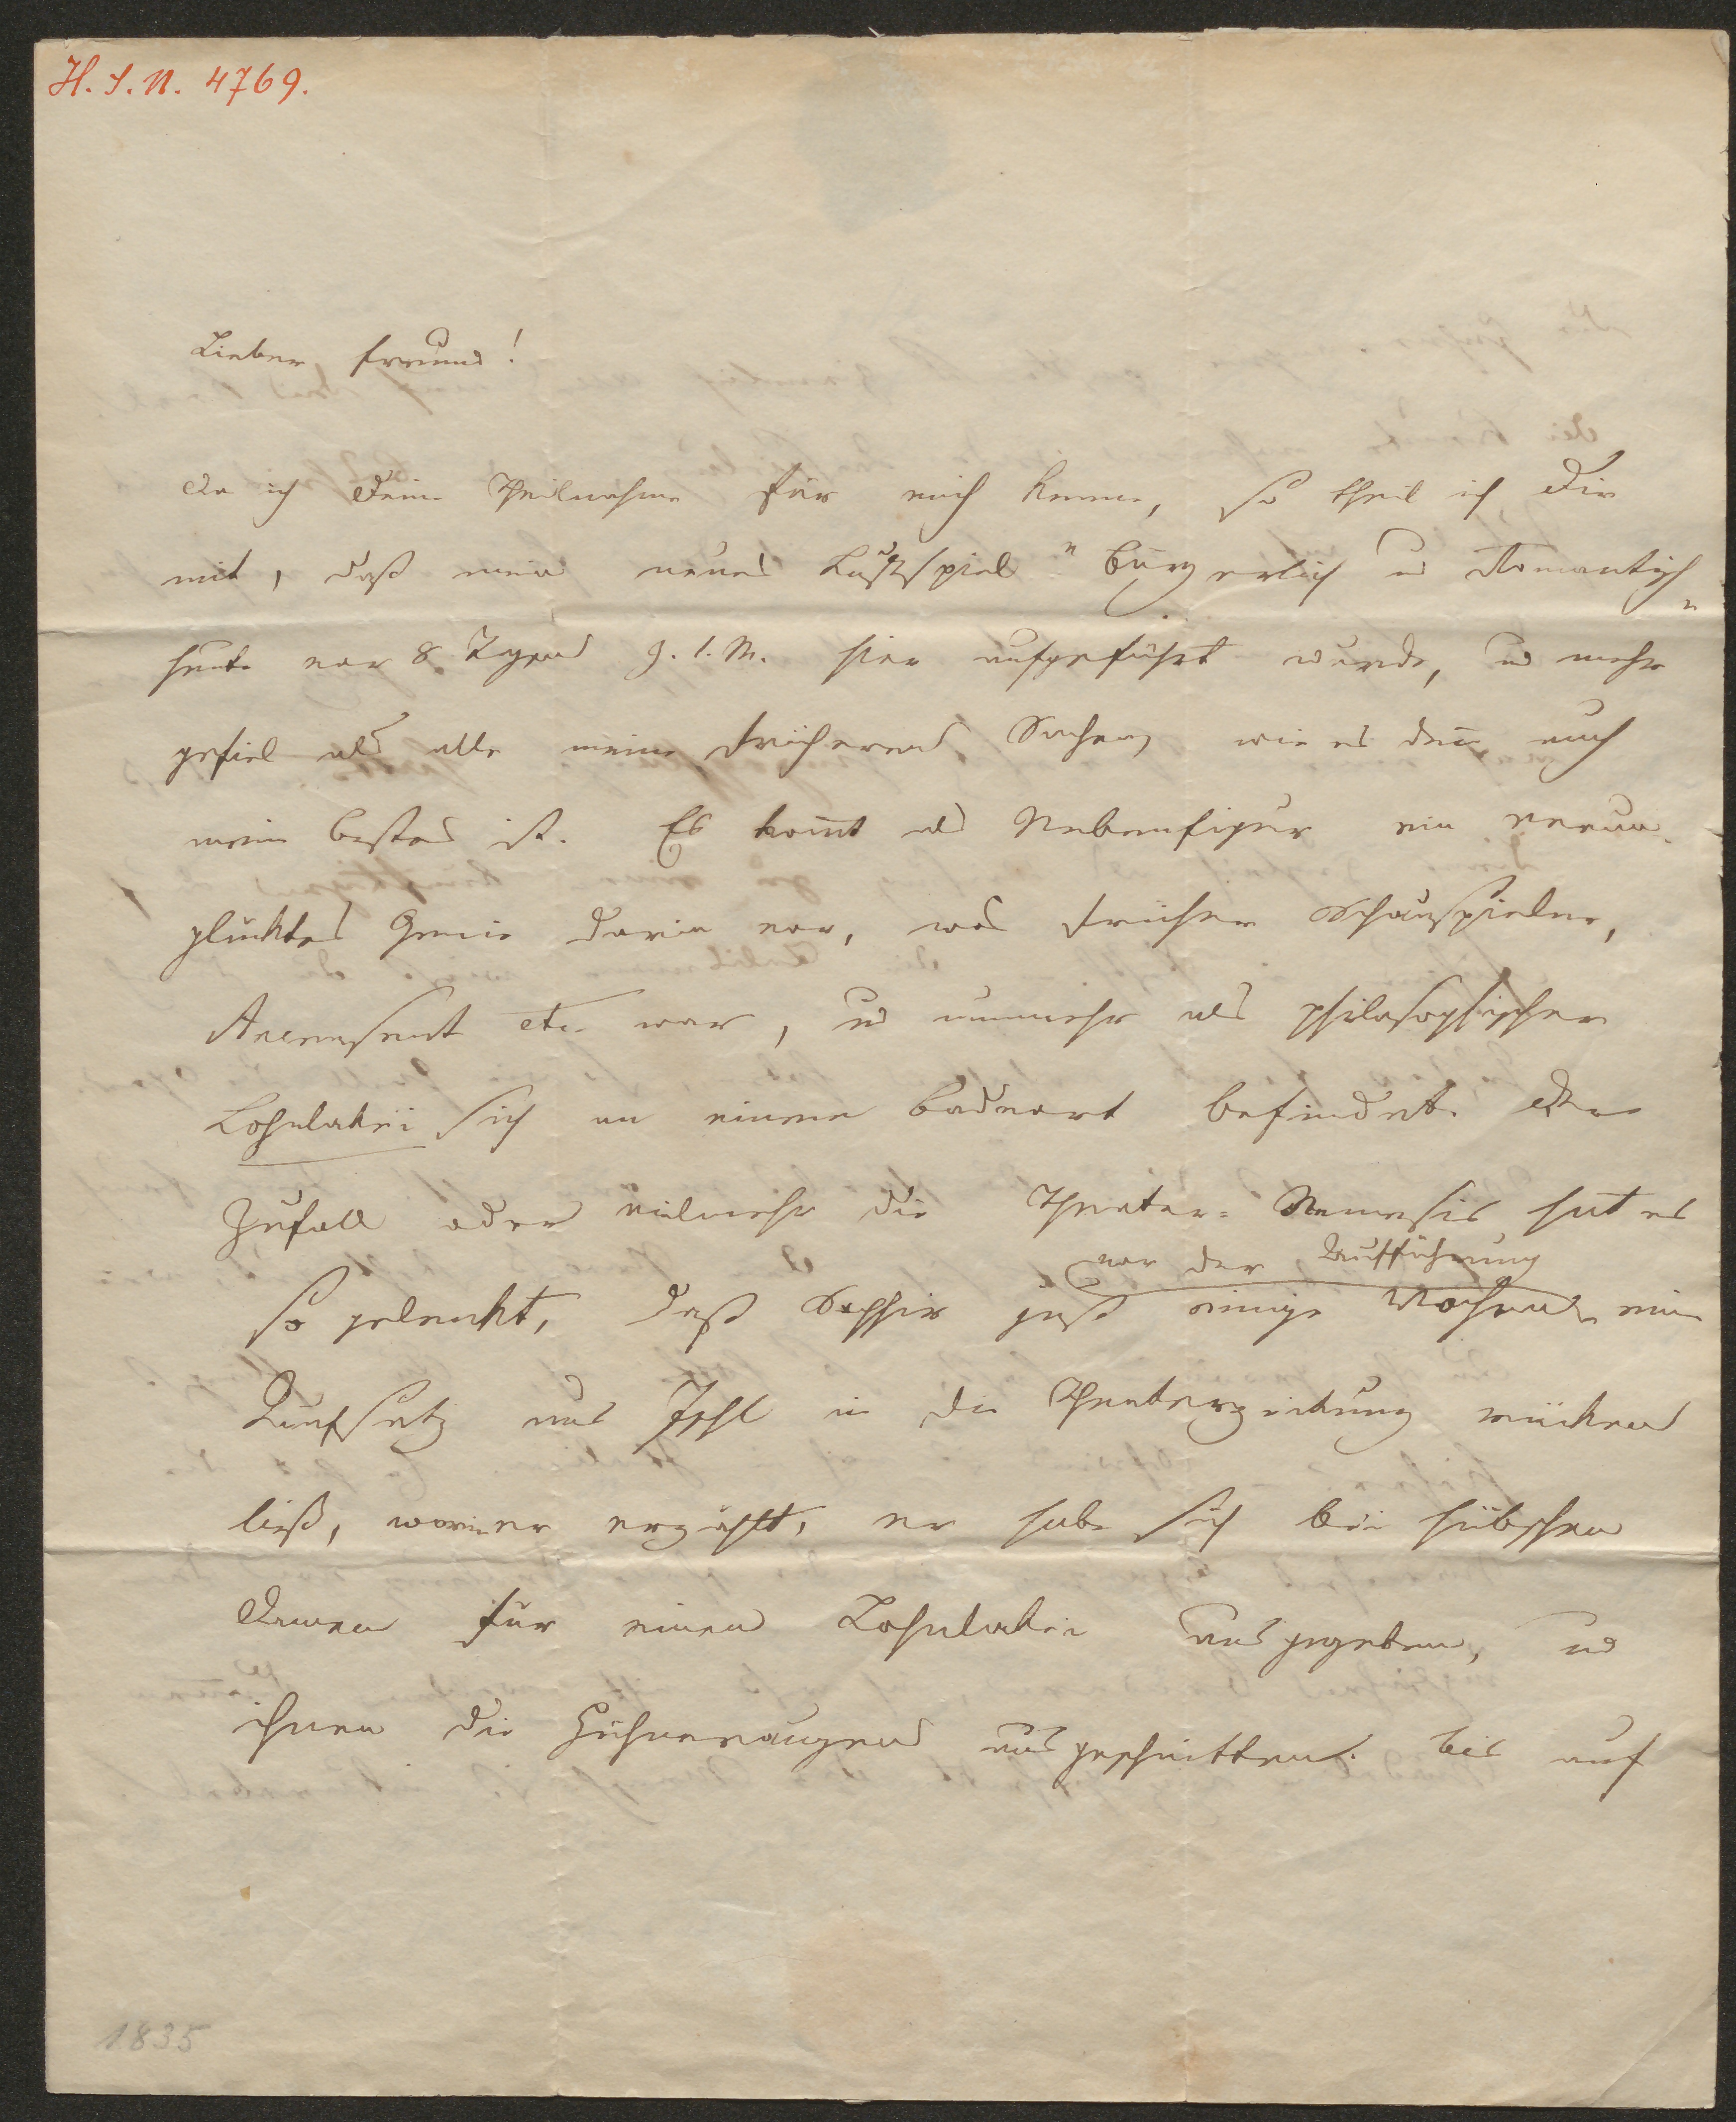 H. I. N. 4769.
Lieber Freund!
Da ich Deine Theilnahme für mich kenne, so theil ich Dir
mit, daß mein neues Lustspiel "Bürgerlich u Romantisch"
heute vor 8 Tagen z. 1. M. hier aufgeführt wurde, u mehr
gefiel als alle meine früheren Sachen, wie es den̄ auch
mein bestes ist. Es kom̄t als Nebenfigur ein verun-
glücktes Genie darin vor, was früher Schauspieler,
Recensent etc war, u nunmehr als philosophischer
Lohnlakei sich an einem Badeort befindet. Der
Zufall oder vielmehr die Theater-Nemesis hat es
vor der Aufführung
so gelenkt, daß Saphir just einige Wochen ein
Aufsatz aus Ischl in die Theaterzeitung rücken
ließ, worin er erzählt, er habe sich bei hübschen
Damen für einen Lohnlakei ausgegeben, u
ihnen die Hühneraugen ausgeschnitten. Bis auf
1835